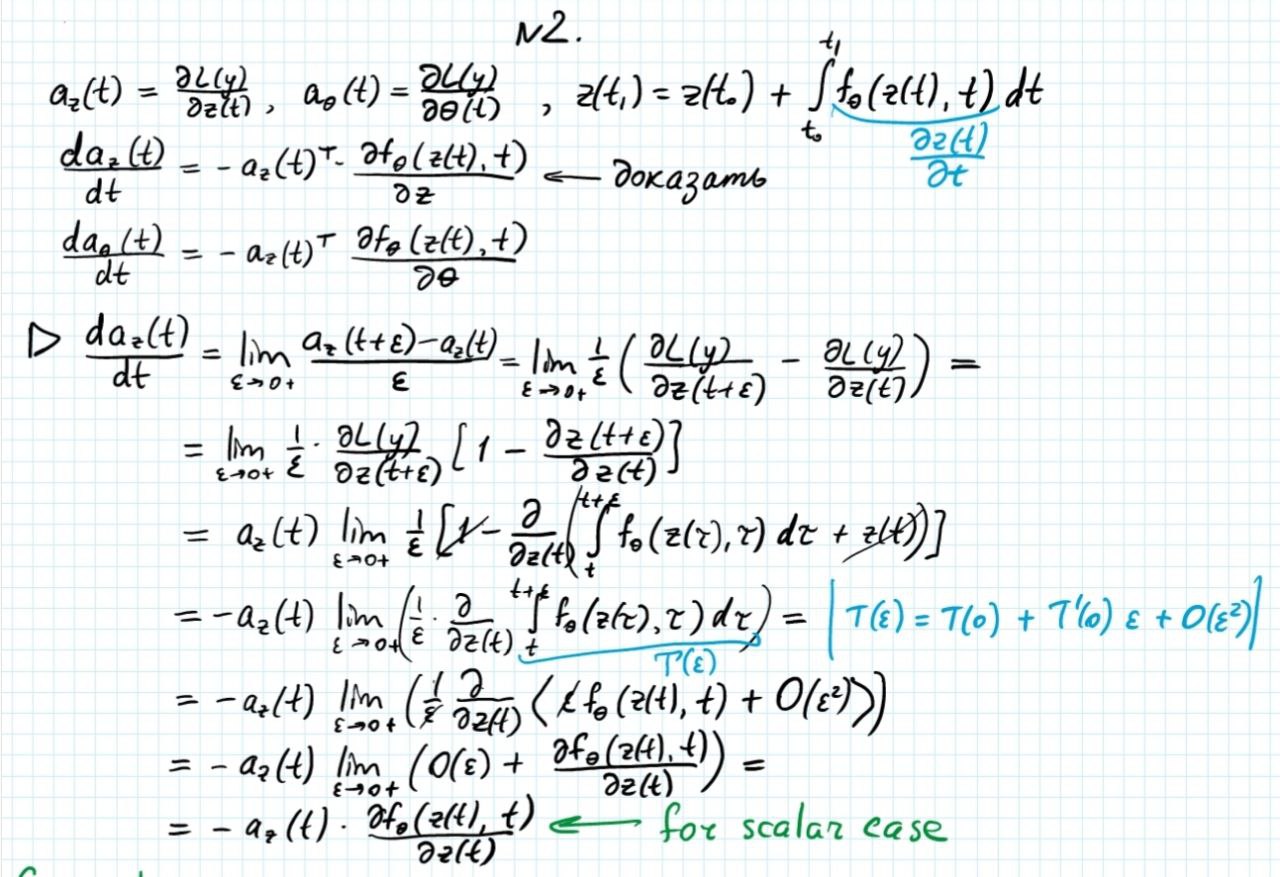 №2.
a_z(t) = ∂L(y)/∂z(t), a_θ(t) = ∂L(y)/∂θ(t), z(t₁) = z(t₀) + ∫_{t₀}^{t₁} f_θ(z(t), t) dt
∂z(t)/∂t
da_z(t)/dt = - a_z(t)^T · ∂f_θ(z(t), t)/∂z ← доказать
da_θ(t)/dt = - a_z(t)^T ∂f_θ(z(t), t)/∂θ
▷ da_z(t)/dt = lim_{ε→0+} (a_z(t+ε) - a_z(t))/ε = lim_{ε→0+} 1/ε (∂L(y)/∂z(t+ε) - ∂L(y)/∂z(t)) =
= lim_{ε→0+} 1/ε · ∂L(y)/∂z(t+ε) [1 - ∂z(t+ε)/∂z(t)]
= a_z(t) lim_{ε→0+} 1/ε [1 - ∂/∂z(t) (∫_t^{t+ε} f_θ(z(τ), τ) dτ + z(t))]
= - a_z(t) lim_{ε→0+} (1/ε · ∂/∂z(t) ∫_t^{t+ε} f_θ(z(τ), τ) dτ) = | T(ε) = T(0) + T'(0) ε + O(ε²) |
T(ε)
= - a_z(t) lim_{ε→0+} (1/ε ∂/∂z(t) ⟨ε f_θ(z(t), t) + O(ε²)⟩)
= - a_z(t) lim_{ε→0+} (O(ε) + ∂f_θ(z(t), t)/∂z(t)) =
= - a_z(t) · ∂f_θ(z(t), t)/∂z(t) ← for scalar case